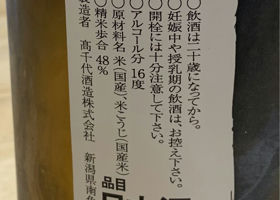 ○飲酒は二十歳になってから。
○妊娠中や授乳期の飲酒は、お控え下さい。
○開栓には十分注意して下さい。
○アルコール分 16度
○原材料名 米(国産)、米こうじ(国産米)
○精米歩合 48%
製造者 髙千代酒造株式会社 新潟県南魚
品目
日本酒